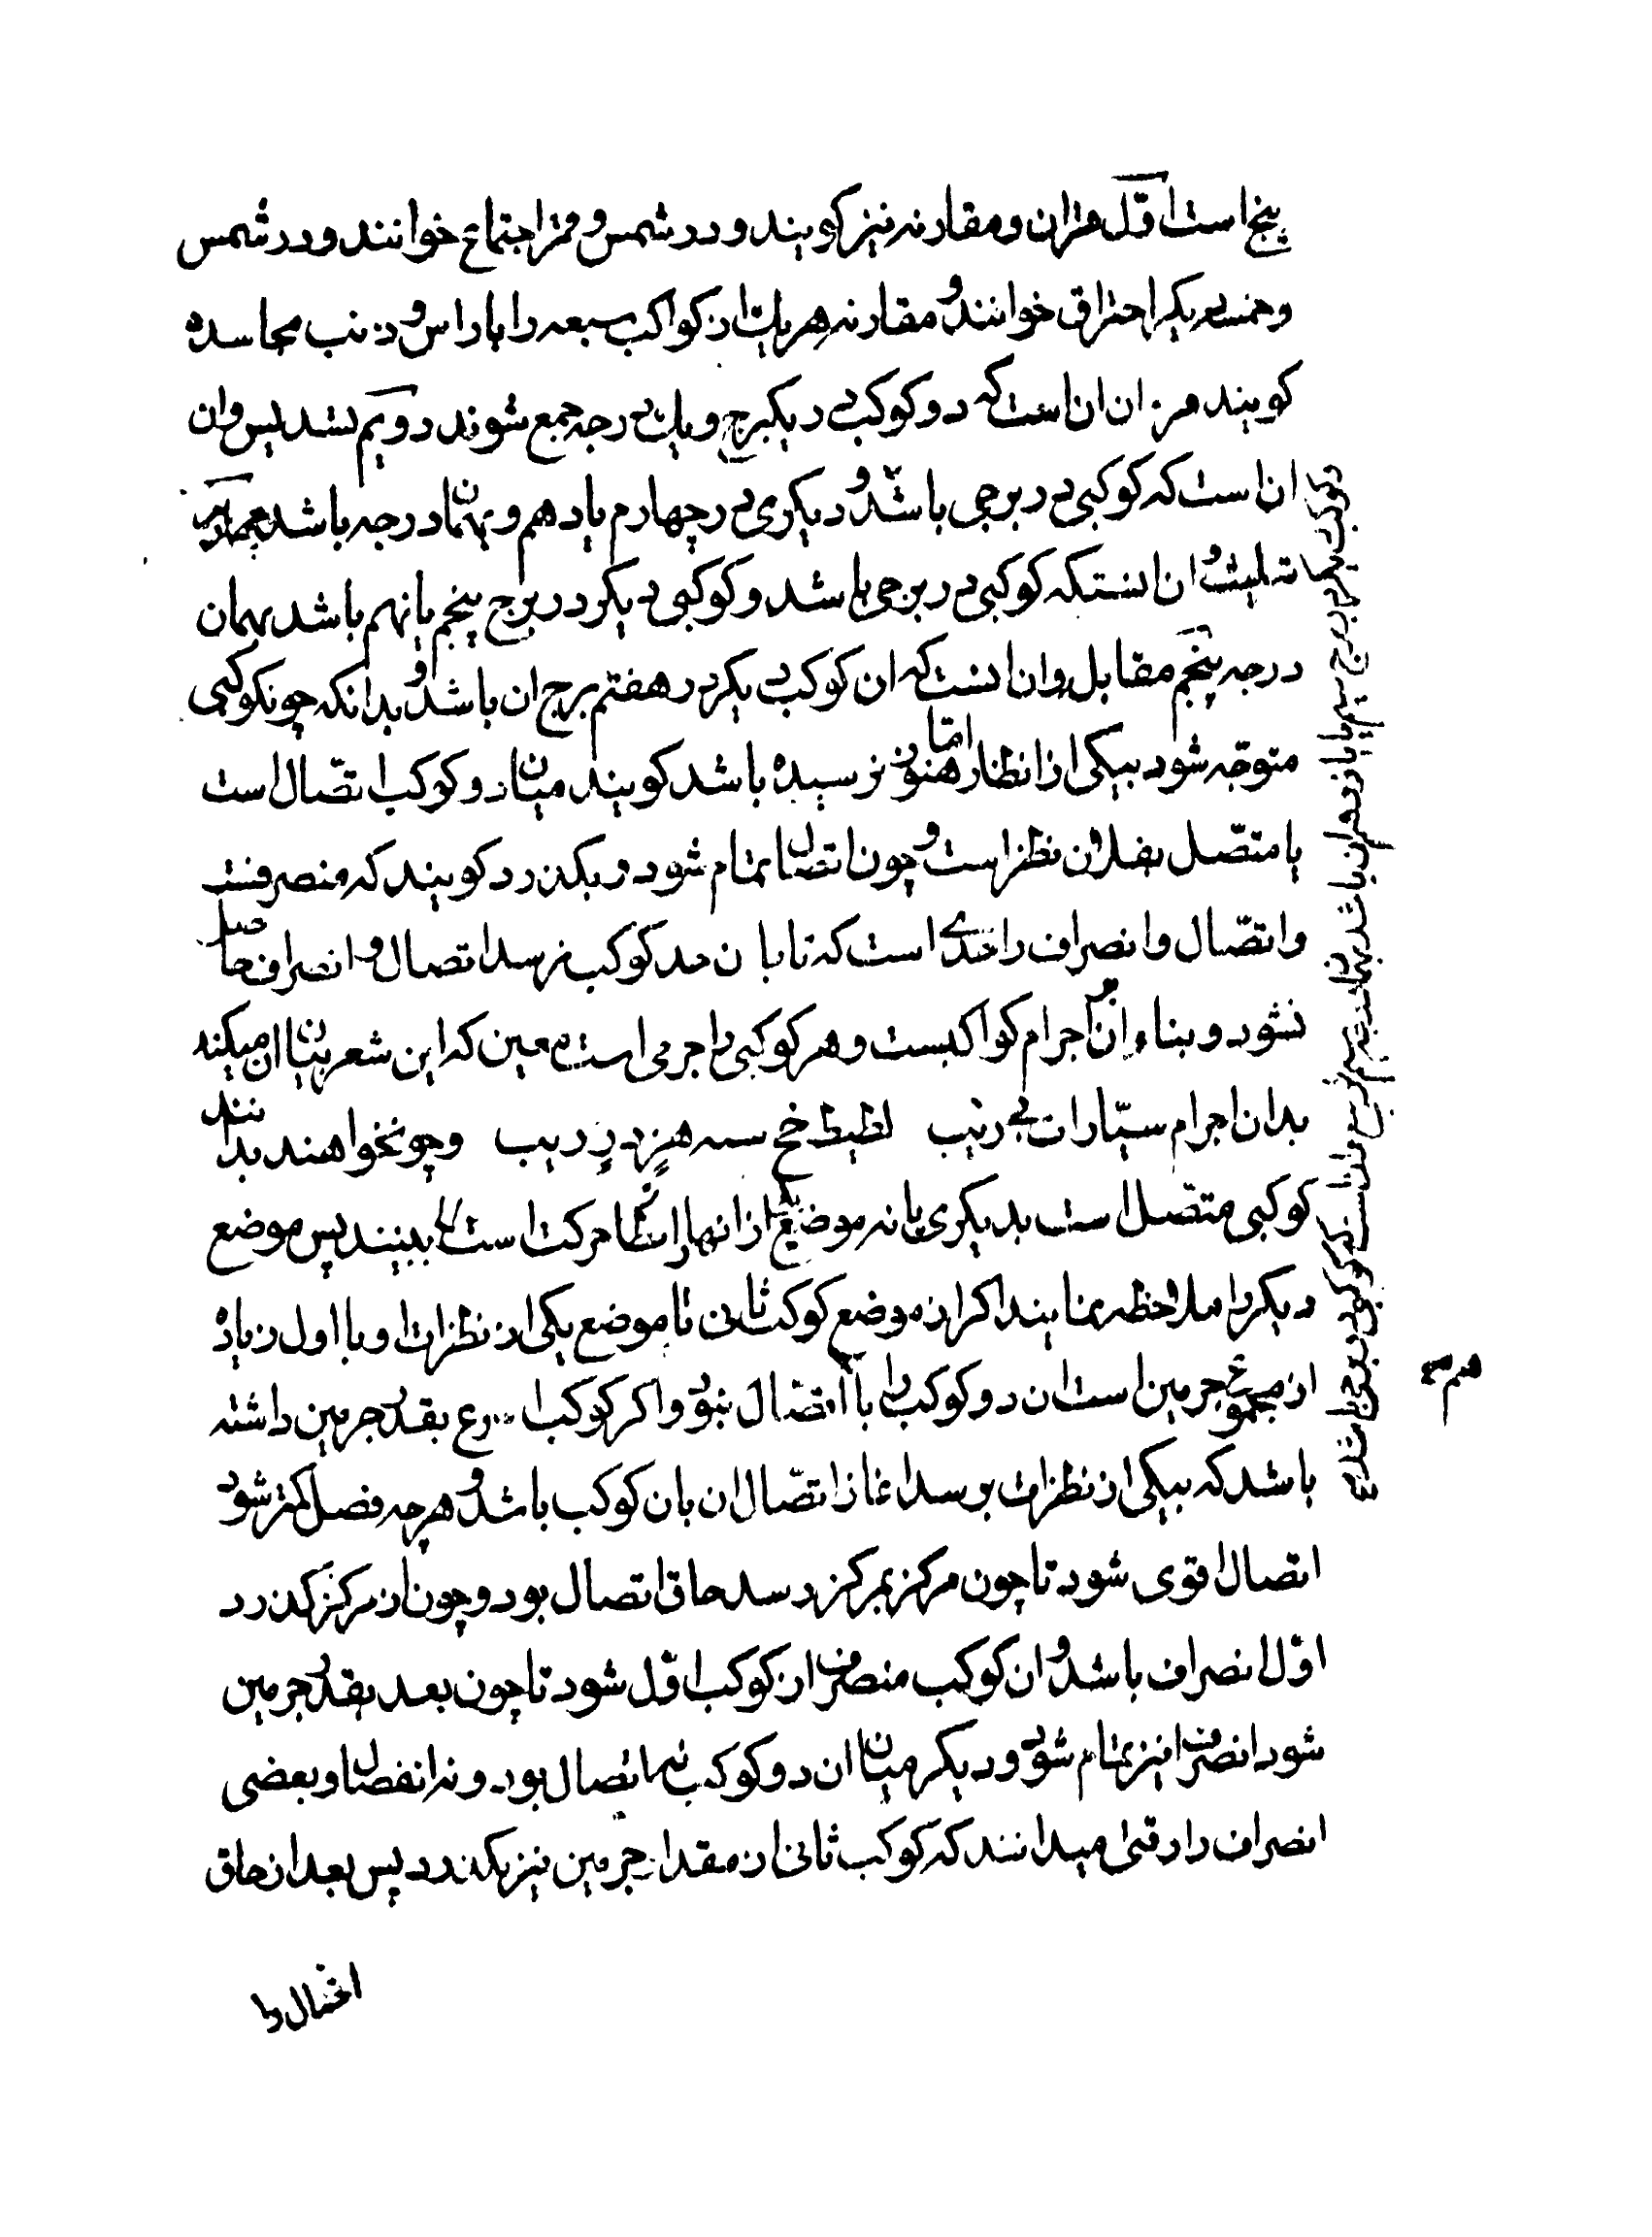 پنج است اوّل قران و مقارنه نیز کویند و در شمس و قمر اجتماع خوانند و در شمس
و خمسه دیکر احتراق خوانند و مقارنه هر یك از کواکب سبعه را با راس و ذنب مجاسده
کویند قران ان است که دو کوکب در یکبرج و یك درجه جمع شوند دویم تسدیس وان
ان است که کوکبی در برجی باشد و دیکری در چهارم یا دهم و بهمان درجه باشد چهارم
تثلیث و ان انستکه کوکبی در برجی باشد و کوکبی دیکر در برج پنجم یا نهم باشد بهمان
درجه پنجم مقابله وان انست که ان کوکب دیکر در هفتم برج ان باشد و بدانکه چونکوکبی
متوجّه شود بیکی از انظار امّا هنوز نرسیده باشد کویند میان دو کوکب اتصّال است
یا متصّل بفلان نظر است و چون اتصال تمام شود و بکذرد کویند که منصرفست
و اتصّال و انصراف را حدی است که تا بان حد کوکب نرسد اتصال و انصراف حاصل
نشود و بناء ان بر اجرام کواکبست و هر کوکبی را جرمی است معین که این شعر بیان ان میکند
بدان اجرام سیّارات بی ریب لطیط خح سه هز در ریب و چونخواهند بدانند
کوکبی متصّل است بدیکری یا نه موضع یکی از انها را که حرکت است ببینند پس موضع
دیکر را ملاحظه نمایند اکر از موضع کوکب ثانی تا موضع یکی از نظرات او با اول زیاده
از مجموع جرمین است ان دو کوکب را با اتصّال نبود و اکر کوکب رع بقدر جرمین داشته
باشد که بیکی از نظرات برسد اغاز اتصّال ان بان کوکب باشد و هرچه فصل کمتر شود
اتصال اقوی شود تا چون مرکز بمرکز رسد حاق اتصال بود و چون از مرکز بکذرد
اوّل انصراف باشد و ان کوکب منصرف از کوکب اوّل شود تا چون بعد بقدر جرمین
شود انصراف نیز تمام شود و دیکر میان ان دو کوکب نه اتصال بود و نه انفصال و بعضی
انصراف را وقتی میدانند که کوکب ثانی از مقدار جرمین نیز بکذرد پس بعد از حاق
اتصال را
دو کوکب دیکر در برج سیم یا یازدهم ان باشد بهمان درجه سیم تربیع وان انست که کوکبی در برجی باشد